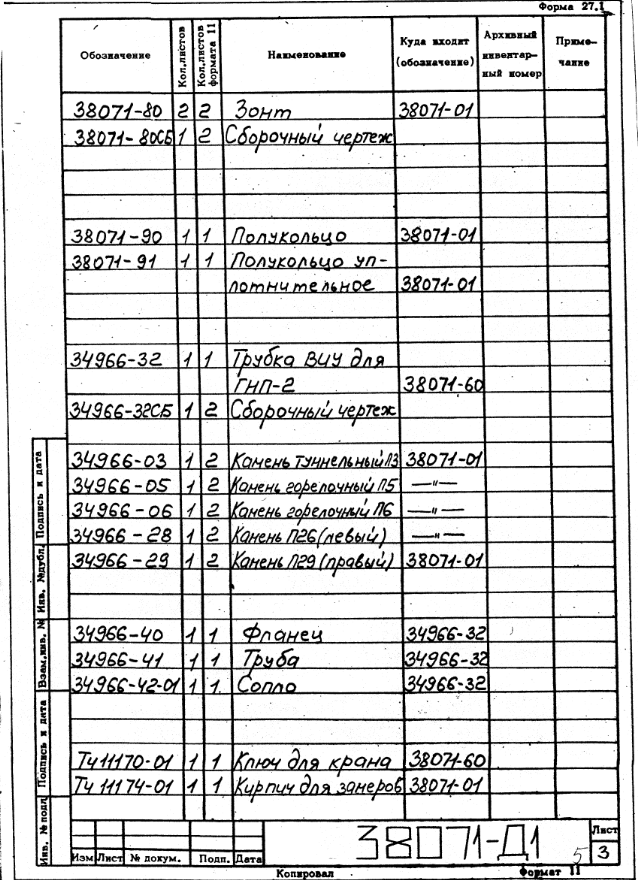 Форма 27.1
Обозначение Кол.листов Кол.листов формата 11 Наименование Куда входит (обозначение) Архивный инвентар- ный номер Приме- чание
38071-80 2 2 Зонт 38071-01
38071-80СБ 1 2 Сборочный чертеж
38071-90 1 1 Полукольцо 38071-01
38071-91 1 1 Полукольцо уп-
лотнительное 38071-01
34966-32 1 1 Трубка ВИУ для
ГНП-2 38071-60
34966-32СБ 1 2 Сборочный чертеж
34966-03 1 2 Камень туннельный П3 38071-01
34966-05 1 2 Камень горелочный П5 —"—
34966-06 1 2 Камень горелочный П6 —"—
34966-28 1 2 Камень П26 (левый) —"—
34966-29 1 2 Камень П29 (правый) 38071-01
34966-40 1 1 Фланец 34966-32
34966-41 1 1 Труба 34966-32
34966-42-01 1 1 Сопло 34966-32
Тч 11170-01 1 1 Ключ для крана 38071-60
Тч 11174-01 1 1 Кирпич для замеров 38071-01
Инв. № подл. Подпись и дата Взам.инв. № Инв. №дубл. Подпись и дата
38071-Д1
Лист
3
5
Изм Лист № докум. Подп. Дата
Копировал Формат 11